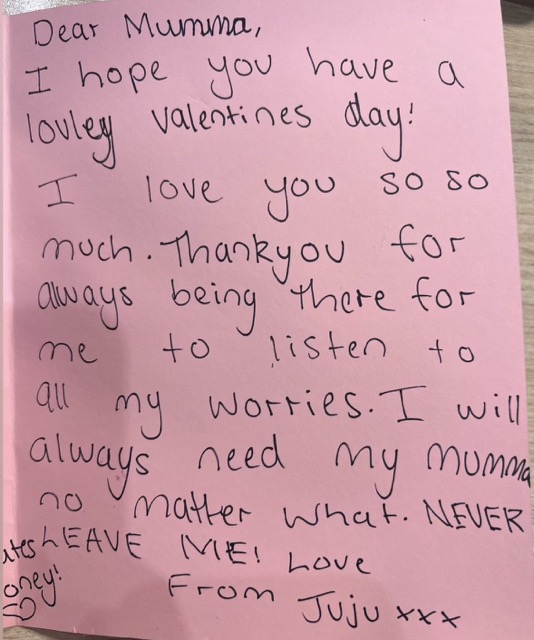 Dear Mumma,
I hope you have a
lovley valentines day!
I love you so so
much. Thankyou for
always being there for
me to listen to
all my worries. I will
always need my mumma
no matter what. NEVER
LEAVE ME! Love
From Juju xxx